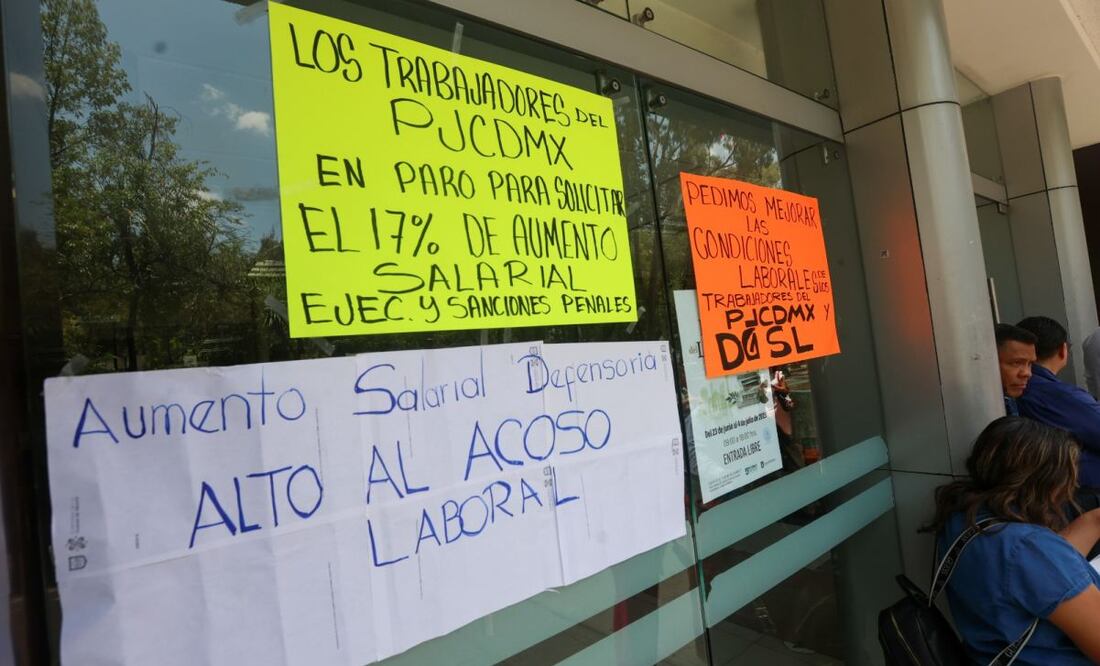 LOS TRABAJADORES DEL
PJCDMX
EN PARO PARA SOLICITAR
EL 17% DE AUMENTO
SALARIAL
EJEC. Y SANCIONES PENALES
PEDIMOS MEJORAR
LAS
CONDICIONES
LABORALES DE LOS
TRABAJADORES DEL
PJCDMX Y
DGSL
Aumento Salarial Defensoria
ALTO AL ACOSO
LABORAL
Del 23 de junio al 4 de julio de 2025
09:00 a 18:00 hrs.
ENTRADA LIBRE